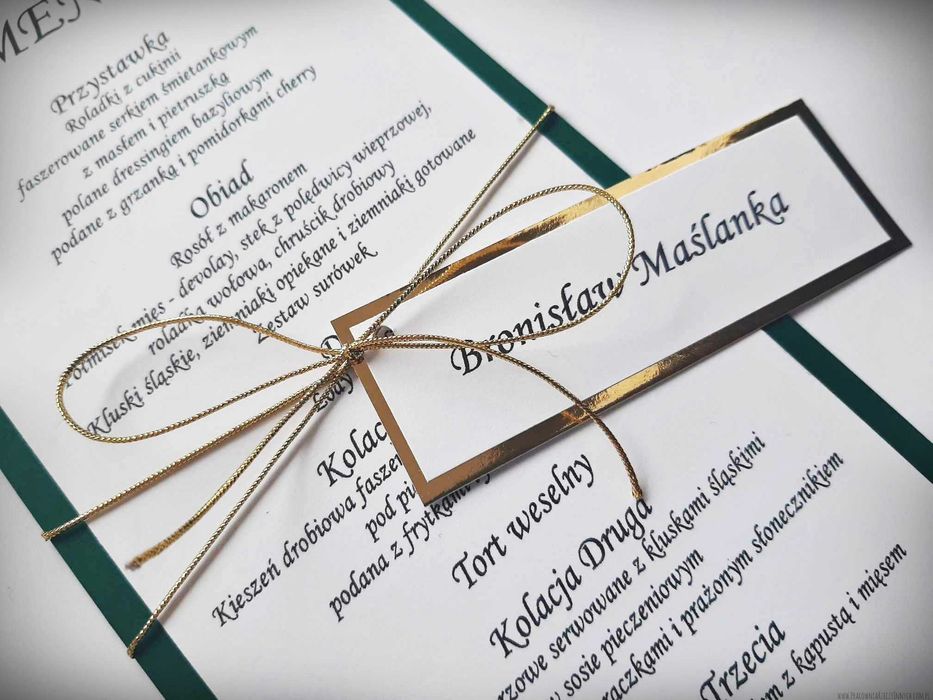 Przystawka
Roladki z cukinii
faszerowane serkiem śmietankowym
z masłem i pietruszką
polane dressingiem bazyliowym
podane z grzanką i pomidorkami cherry
Obiad
Rosół z makaronem
mięs - devolay, stek z polędwicy wieprzowej,
rolada wołowa, chruścik drobiowy
Kluski śląskie, ziemniaki opiekane i ziemniaki gotowane
Zestaw surówek
Bronisław Maślanka
Kieszeń drobiowa
pod
podana z frytkami
Tort weselny
Kolacja Druga
serwowane z kluskami śląskimi
w sosie pieczeniowym
i prażonym słonecznikiem
Trzecia
z kapustą i mięsem